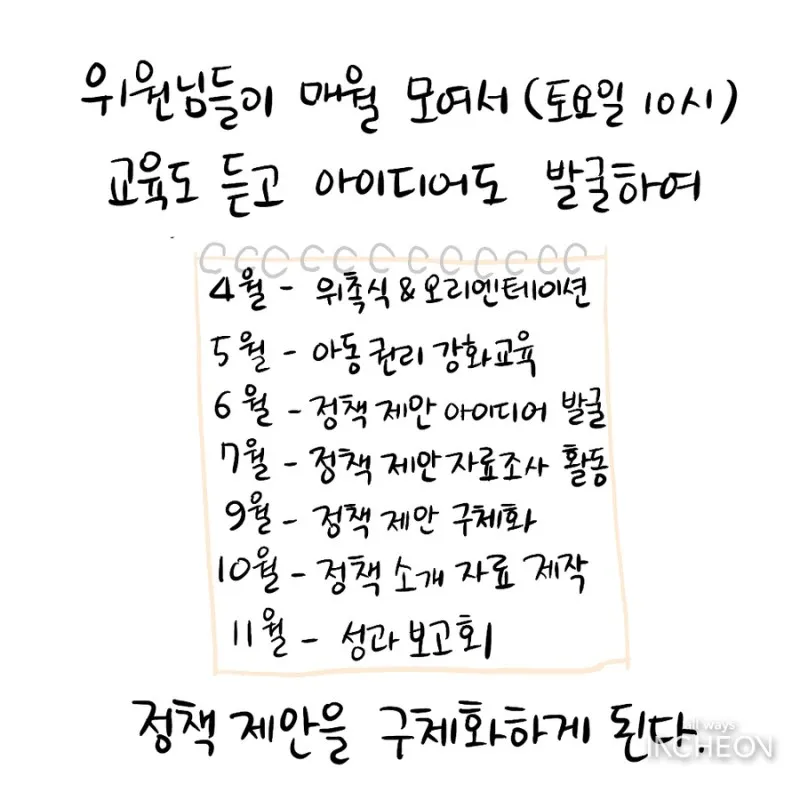 위원님들이 매월 모여서 (토요일 10시)
교육도 듣고 아이디어도 발굴하여
4월 - 위촉식 & 오리엔테이션
5월 - 아동권리 강화교육
6월 - 정책 제안 아이디어 발굴
7월 - 정책 제안 자료조사 활동
9월 - 정책 제안 구체화
10월 - 정책 소개 자료 제작
11월 - 성과 보고회
정책 제안을 구체화하게 된다.
all ways
INCHEON